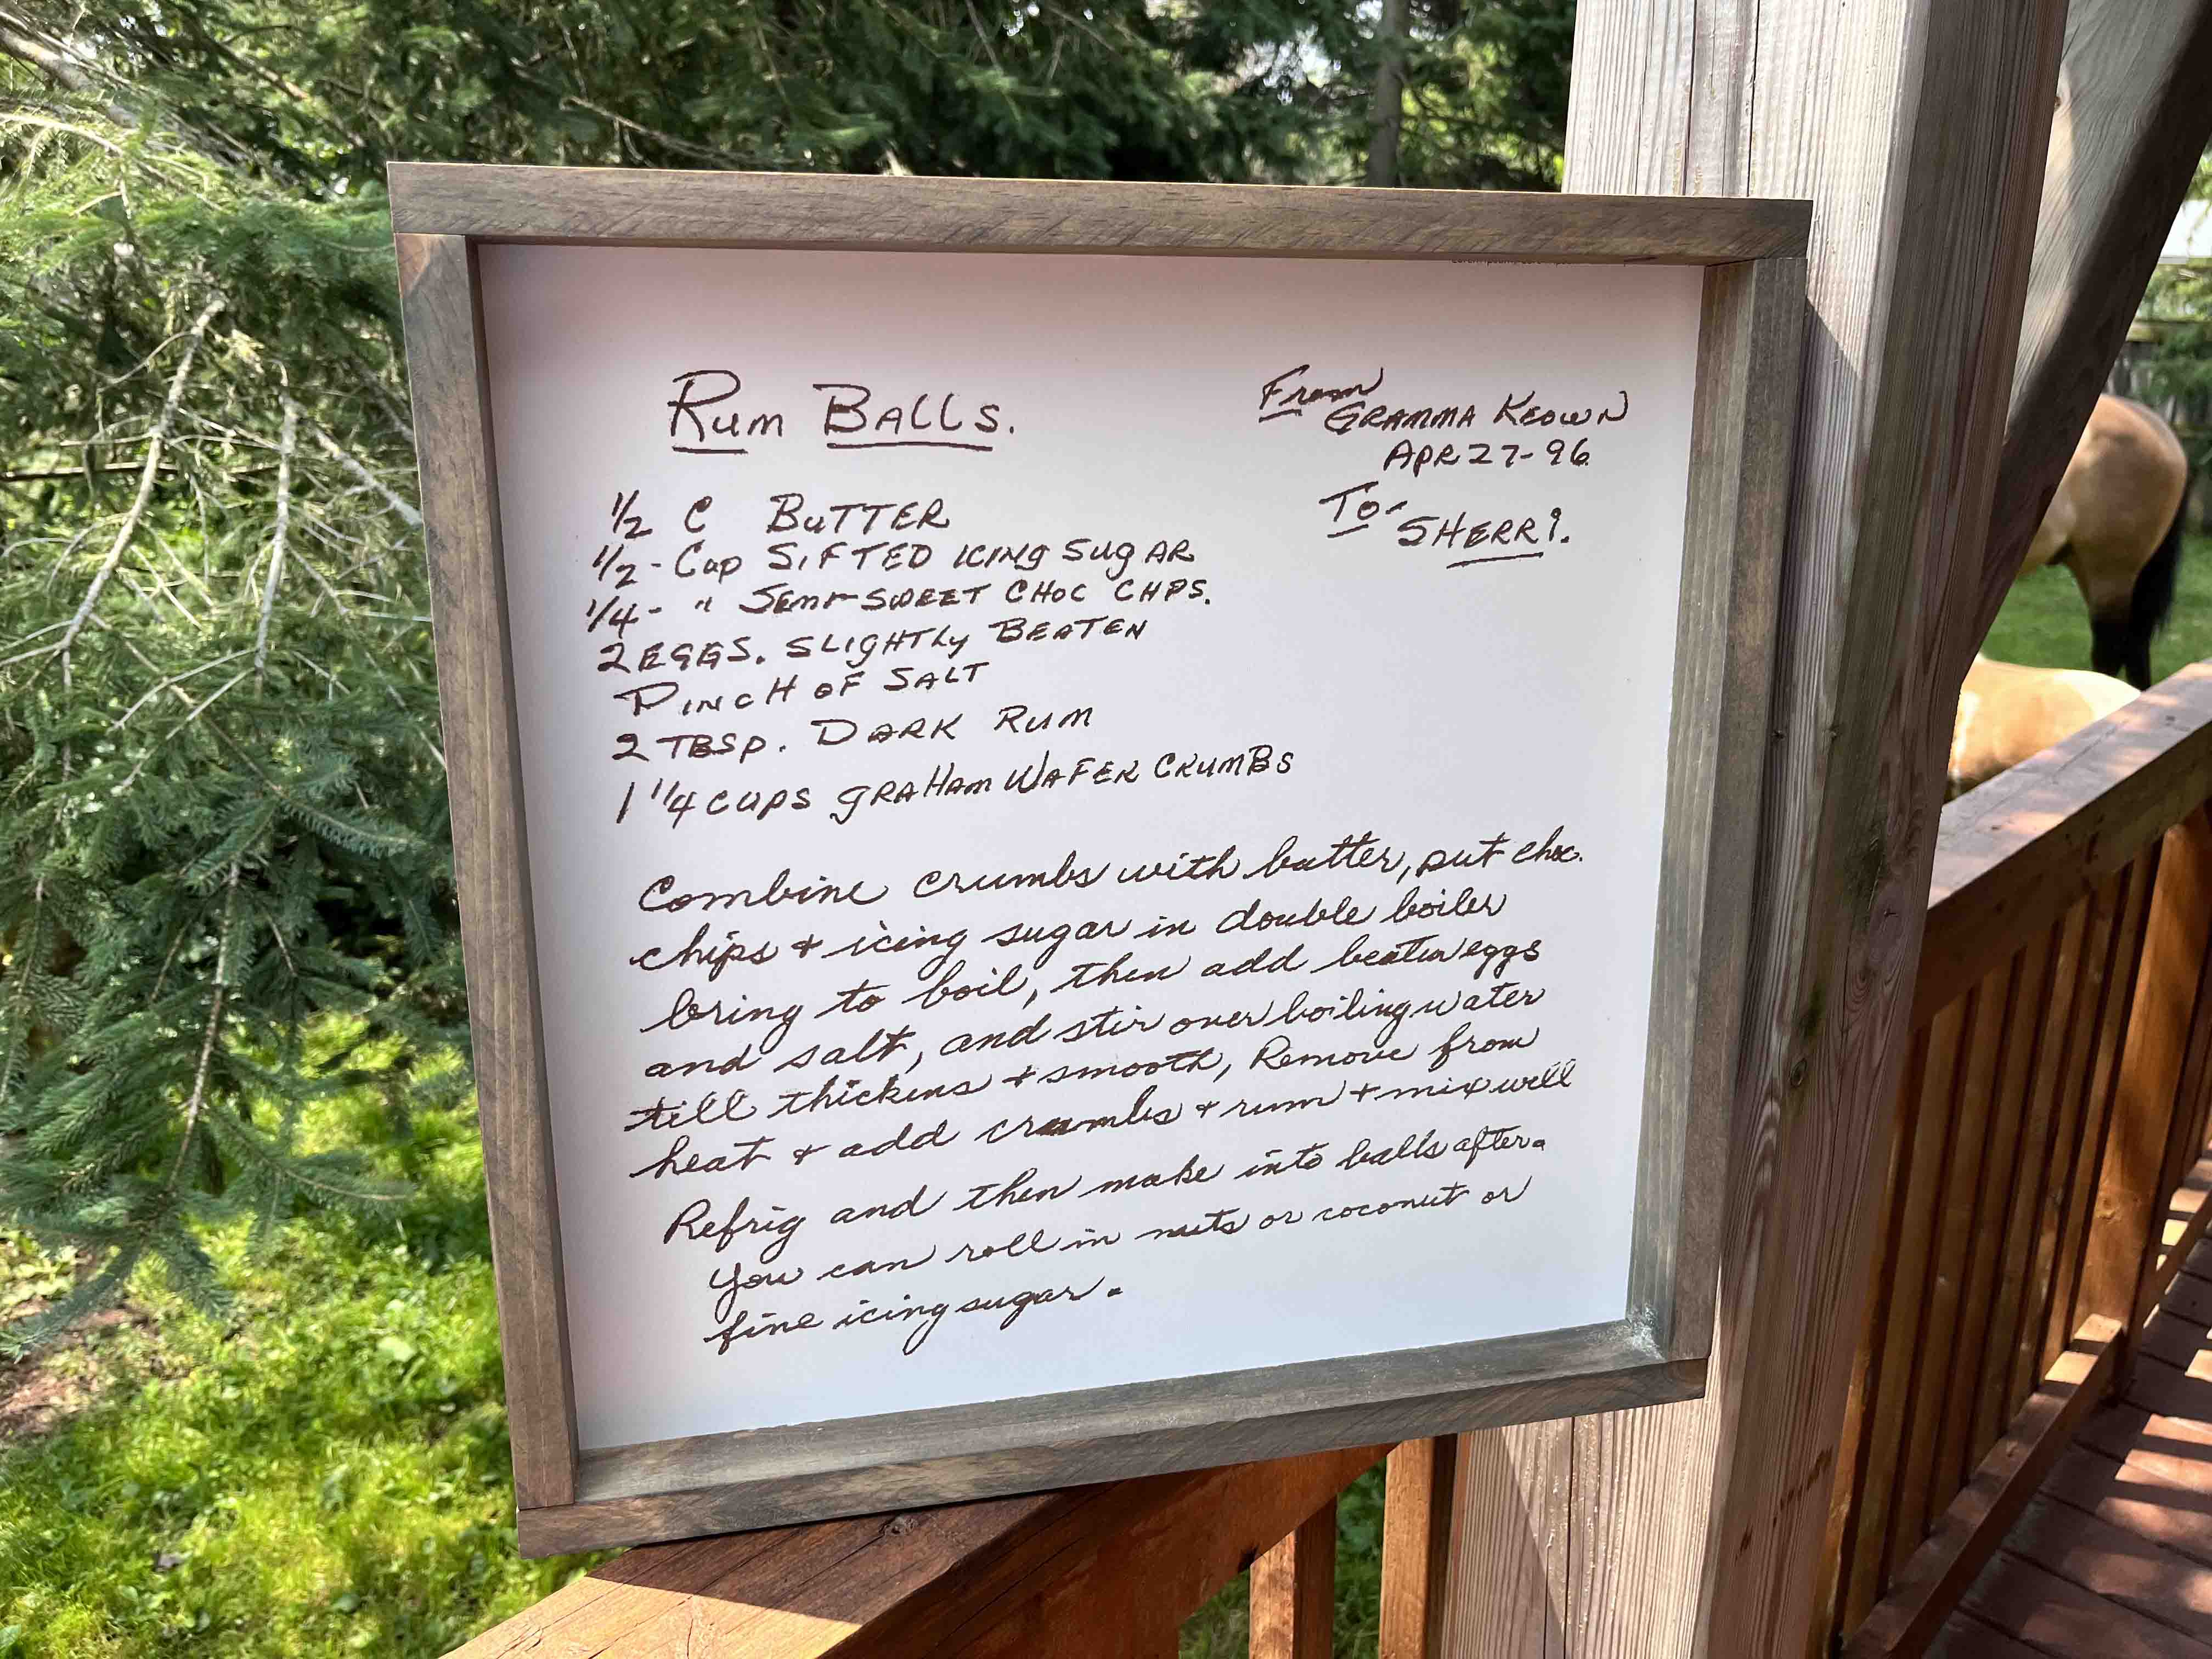 Rum Balls.
From
Gramma Keown
Apr 27-96
To-
Sherri.
1/2 C Butter
1/2 - Cup Sifted icing sugar
1/4 - " Semi-sweet choc chps.
2 Eggs. Slightly Beaten
Pinch of Salt
2 Tbsp. Dark Rum
1 1/4 cups graham wafer crumbs
Combine crumbs with butter, put choc.
chips + icing sugar in double boiler
bring to boil, then add beaten eggs
and salt, and stir over boiling water
till thickens + smooth, Remove from
heat + add crumbs + rum + mix well
Refrig and then make into balls after.
You can roll in nuts or coconut or
fine icing sugar.